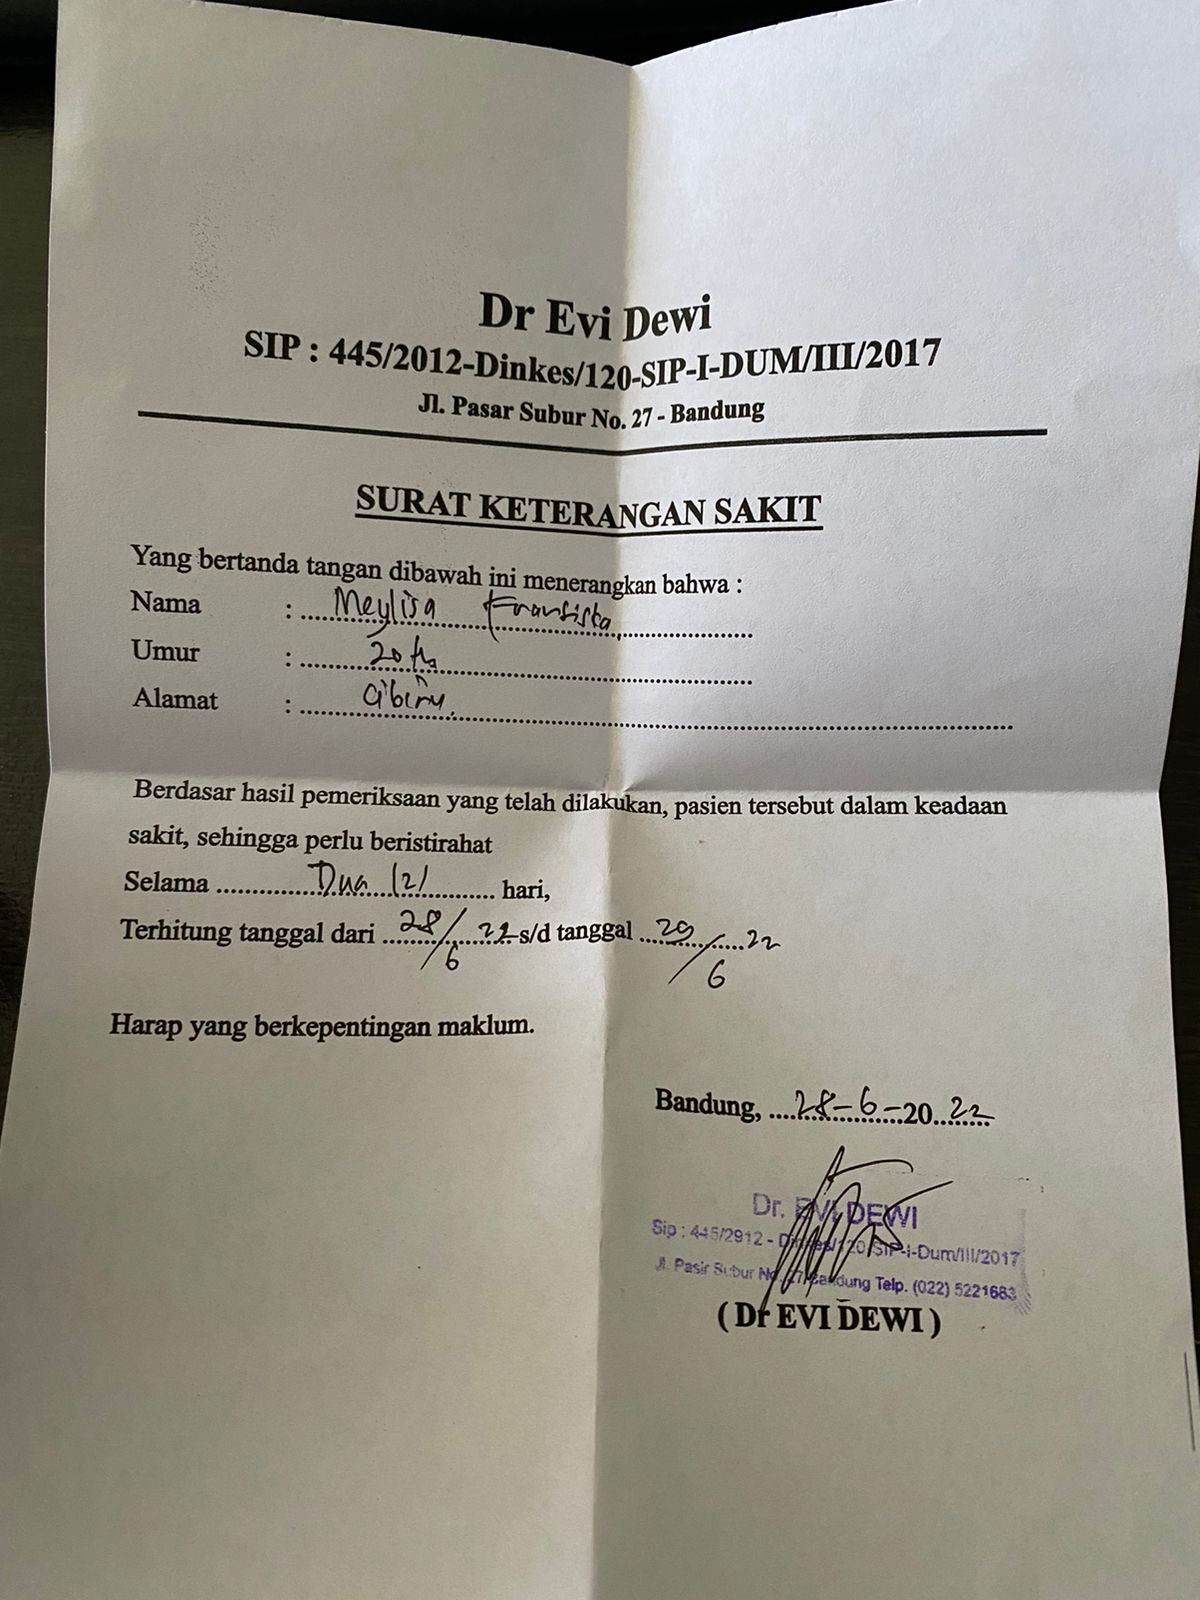 Dr Evi Dewi
SIP : 445/2012-Dinkes/120-SIP-I-DUM/III/2017
Jl. Pasar Subur No. 27 - Bandung
SURAT KETERANGAN SAKIT
Yang bertanda tangan dibawah ini menerangkan bahwa :
Nama : Meylisa Fransiska
Umur : 20 th
Alamat : Cibiru.
Berdasar hasil pemeriksaan yang telah dilakukan, pasien tersebut dalam keadaan
sakit, sehingga perlu beristirahat
Selama Dua (2) hari,
Terhitung tanggal dari 28/6 22 s/d tanggal 29/6 22
Harap yang berkepentingan maklum.
Bandung, 28-6-2022
Dr. EVI DEWI
Sip : 445/2912 - Dinkes/120/SIP-i-Dum/III/2017
Jl. Pasir Subur No. 27 Bandung Telp. (022) 5221663
( Dr EVI DEWI )